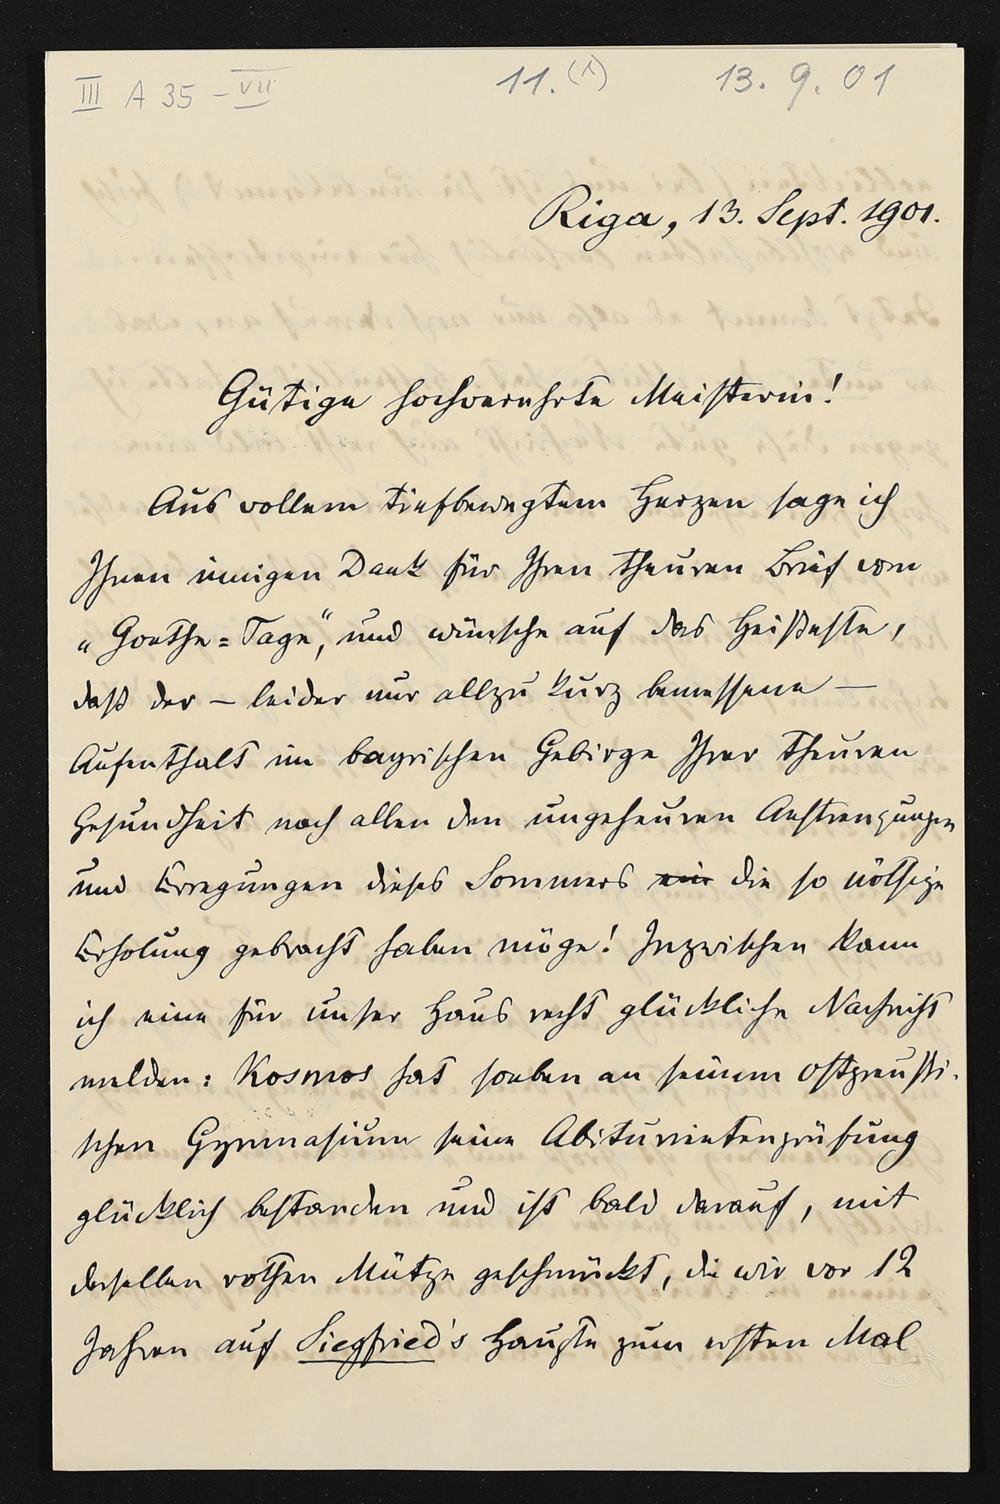 III A 35 - VII
11. (1)
13. 9. 01
Riga, 13. Sept. 1901.
Gütige hochverehrte Meisterin!
Aus vollem tiefbewegtem Herzen sage ich
Ihnen innigen Dank für Ihren theuren Brief vom
„Goethe=Tage", und wünsche auf das Heißeste,
daß der – leider nur allzu kurz bemessene –
Aufenthalt im bayrischen Gebirge Ihrer theuren
Gesundheit nach allen den ungeheuren Anstrengungen
und Erregungen dieses Sommers die so nöthige
Erholung gebracht haben möge! Inzwischen kann
ich eine für unser Haus recht glückliche Nachricht
melden: Kosmos hat soeben an seinem ostpreussi-
schen Gymnasium seine Abiturientenprüfung
glücklich bestanden und ist bald darauf, mit
derselben rothen Mütze geschmückt, die wir vor 12
Jahren auf Siegfried's Haupte zum ersten Mal